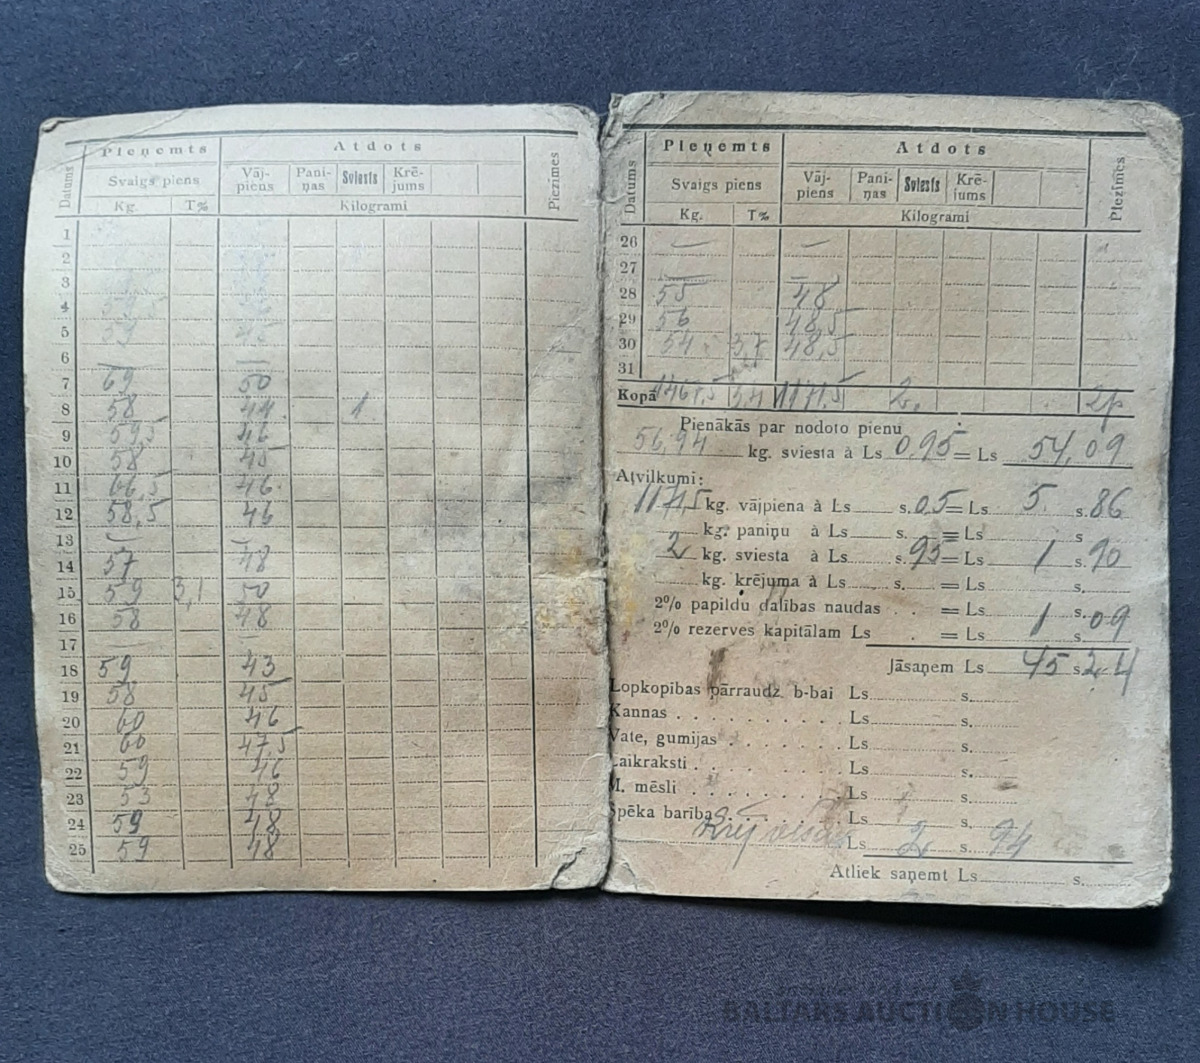 Datums Pieņemts Atdots Piezīmes
Svaigs piens Vāj-piens Pani-ņas Sviests Krē-jums
Kg. T% Kilogrami
1
2
3
4
5 45
6 —
7 69 50
8 58 44 1
9 59,5 46
10 58 45
11 66,5 46
12 58,5 46
13 — —
14 57 48
15 59 3,1 50
16 58 48
17 — —
18 59 43
19 58 45
20 60 46
21 60 47,5
22 59 46
23 53 48
24 59 48
25 59 48
Datums Pieņemts Atdots Piezīmes
Svaigs piens Vāj-piens Pani-ņas Sviests Krē-jums
Kg. T% Kilogrami
26 — —
27 — —
28 55 48
29 56 48,5
30 54 3,7 48,5
31
Kopā 1467,5 3,4 1171,5 2,
Pienākās par nodoto pienu
56,94 kg. sviesta à Ls 0,95 = Ls 54,09
Atvilkumi:
1171,5 kg. vājpiena à Ls s. 0,5 = Ls 5 s. 86
kg. paniņu à Ls s. = Ls s.
2 kg. sviesta à Ls s. 95 = Ls 1 s. 90
kg. krējuma à Ls s. = Ls s.
2% papildu dalības naudas = Ls 1 s. 09
2% rezerves kapitālam Ls = Ls s.
Jāsaņem Ls 45 s. 24
Lopkopības pārraudz. b-bai Ls s.
Kannas Ls s.
Vate, gumijas Ls s.
Laikraksti Ls s.
M. mēsli Ls s.
Spēka barība Ls s.
Ls 2 s. 94
Atliek saņemt Ls s.
BALTARS AUCTION HOUSE